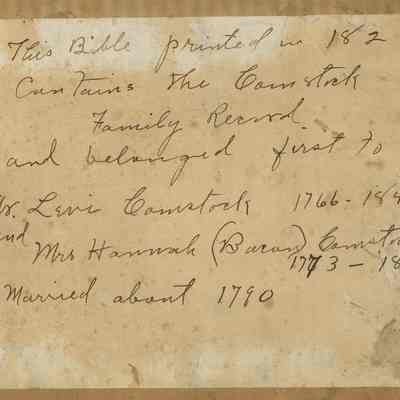 This Bible printed in 182
Contains the Comstock
Family Record
and belonged first to
Mr. Levi Comstock 1766-18
and
Mrs Hannah (Bacon) Comsto
1773-18
Married about 1790